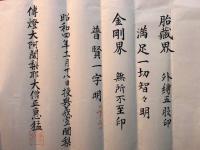 胎藏界 外縛五股印
満足一切智々明
金剛界 無所不至印
普賢一字明
昭和四年十二月十八日授與
傳燈大阿闍梨耶大僧正惠猛